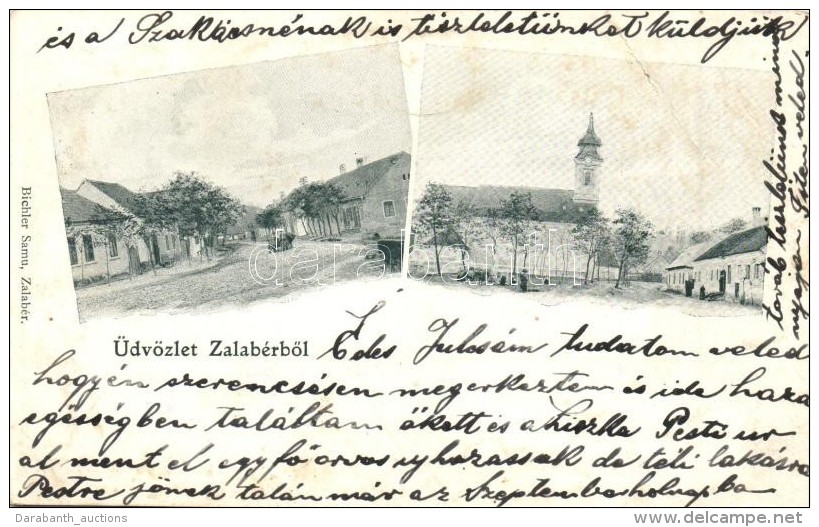 és a Szakácsnénak is tiszteletünket küldjük
Bichler Samu, Zalabér.
Üdvözlet Zalabérből
Édes Julcsám tudatom veled
hogyén szerencsésen megerkeztem és ide haza
egésségben találtam őkett és a Liszka Pesti ur
al ment el egy fő orvos uy hozassak de téli lakásra
Pestre jönek talán már az Szeptemberholnapba
továb tiszteljünok
veled
Darabanth_auctions
www.delcampe.net
delcampe.net